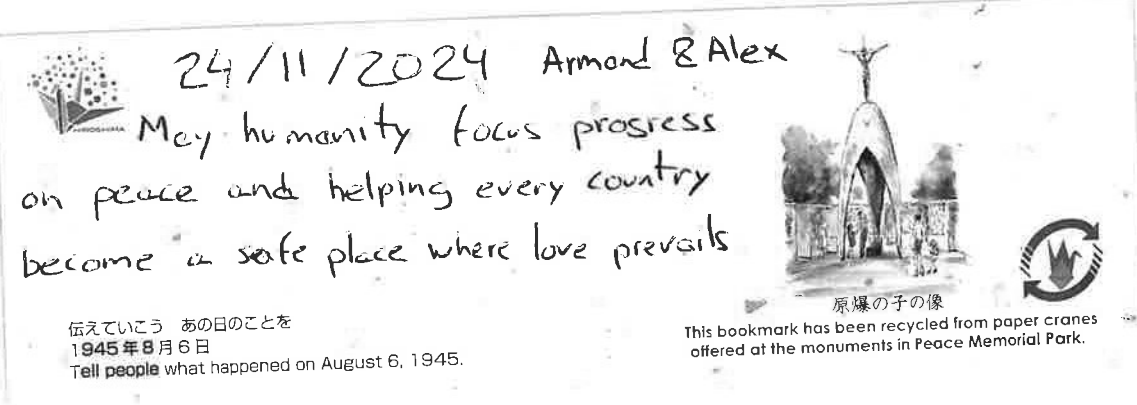 24/11/2024 Armond & Alex
HIROSHIMA
May humanity focus progress
on peace and helping every country
become a safe place where love prevails
伝えていこう あの日のことを
1945年8月6日
Tell people what happened on August 6, 1945.
原爆の子の像
This bookmark has been recycled from paper cranes
offered at the monuments in Peace Memorial Park.